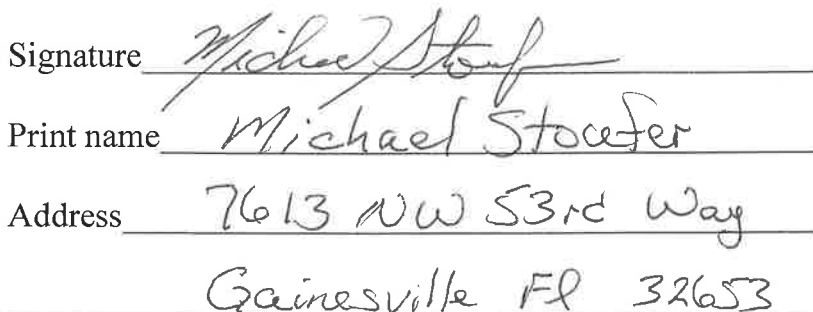 Signature Michael Stoufer
Print name Michael Stoufer
Address 7613 NW 53rd Way
Gainesville Fl 32653